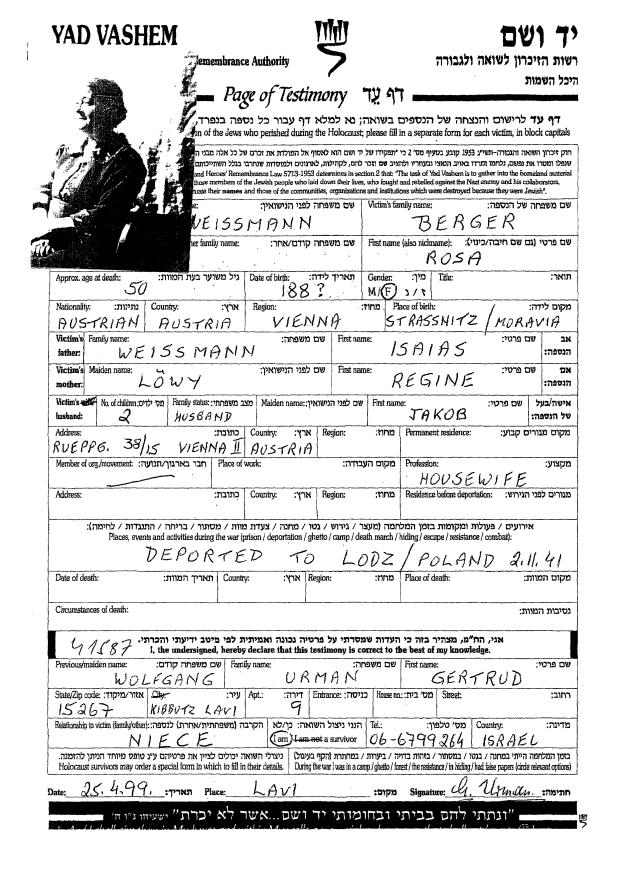 YAD VASHEM
יד ושם
רשות הזיכרון לשואה ולגבורה
היכל השמות
Remembrance Authority
Page of Testimony דף עד
דף עד לרישום והנצחה של הנספים בשואה; נא למלא דף עבור כל נספה בנפרד,
on of the Jews who perished during the Holocaust; please fill in a separate form for each victim, in block capitals
and Heroes' Remembrance Law 5713-1953 determines in section 2 that: "The task of Yad Vashem is to gather into the homeland material
those members of the Jewish people who laid down their lives, who fought and rebelled against the Nazi enemy and his collaborators,
uate their names and those of the communities, organizations and institutions which were destroyed because they were Jewish".
name: שם משפחה לפני הנישואין: Victim's family name: שם משפחה של הנספה:
WEISSMANN BERGER
her family name: שם משפחה קודם/אחר: First name (also nickname): שם פרטי (גם שם חיבה/כינוי):
ROSA
Approx. age at death: גיל משוער בעת המוות: Date of birth: תאריך לידה: Gender: מין: Title: תואר:
50 188? M/F ז/נ
Nationality: נתינות: Country: ארץ: Region: מחוז: Place of birth: מקום לידה:
AUSTRIAN AUSTRIA VIENNA STRASSNITZ / MORAVIA
Victim's father: Family name: שם משפחה: First name: שם פרטי: אב הנספה:
WEISSMANN ISAIAS
Victim's mother: Maiden name: שם לפני הנישואין: First name: שם פרטי: אם הנספה:
LÖWY REGINE
Victim's husband: No. of children: מס' ילדים: Family status: מצב משפחתי: Maiden name: שם לפני הנישואין: First name: שם פרטי: אישה/בעל של הנספה:
2 HUSBAND JAKOB
Address: כתובת: Country: ארץ: Region: מחוז: Permanent residence: מקום מגורים קבוע:
RUEPPG. 38/15 VIENNA II AUSTRIA
Member of org./movement: חבר בארגון/תנועה: Place of work: מקום העבודה: Profession: מקצוע:
HOUSEWIFE
Address: כתובת: Country: ארץ: Region: מחוז: Residence before deportation: מגורים לפני הגירוש:
אירועים / פעולות ומקומות בזמן המלחמה (מעצר / גירוש / גטו / מחנה / צעדת מוות / מסתור / בריחה / התנגדות / לחימה):
Places, events and activities during the war (prison / deportation / ghetto / camp / death march / hiding / escape / resistance / combat):
DEPORTED TO LODZ / POLAND 2.11.41
Date of death: תאריך המוות: Country: ארץ: Region: מחוז: Place of death: מקום המוות:
Circumstances of death: נסיבות המוות:
אני, הח"מ, מצהיר בזה כי העדות שמסרתי על פרטיה נכונה ואמיתית לפי מיטב ידיעתי והכרתי.
41587 I, the undersigned, hereby declare that this testimony is correct to the best of my knowledge.
Previous/maiden name: שם משפחה קודם: Family name: שם משפחה: First name: שם פרטי:
WOLFGANG URMAN GERTRUD
State/Zip code: אזור/מיקוד: City: עיר: Apt.: דירה: Entrance: כניסה: House no.: מס' בית: Street: רחוב:
15267 KIBBUTZ LAVI 9
Relationship to victim (family/other): הקרבה (משפחתית/אחרת) לנספה: I am/I am not a survivor הנני ניצול השואה: כן/לא Tel.: מס' טלפון: Country: מדינה:
NIECE 06-6799264 ISRAEL
ניצולי השואה יכולים לציין את פרטיהם ע"ג טופס מיוחד הניתן להזמנה.
Holocaust survivors may order a special form in which to fill in their details.
בזמן המלחמה הייתי במחנה / בגטו / במסתור / בזהות בדויה / ביערות / במחתרת (הקף בעיגול)
During the war I was in a camp / ghetto / forest / the resistance / in hiding / had false papers (circle relevant options)
Date: 25.4.99. תאריך: Place: LAVI מקום: Signature: G. Urman. חתימה:
"ונתתי להם בביתי ובחומותי יד ושם...אשר לא יכרת" ישעיהו נ"ו ה'